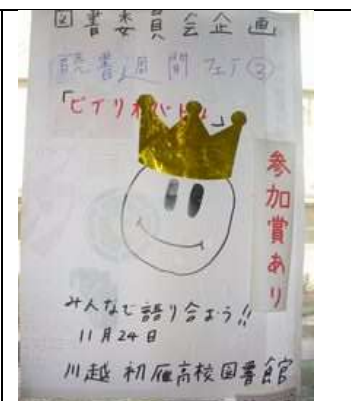 図書委員会企画
読書週間フェア③
「ビブリオバトル」
参加賞あり
みんなで語り合おう!!
11月24日
川越初雁高校図書館